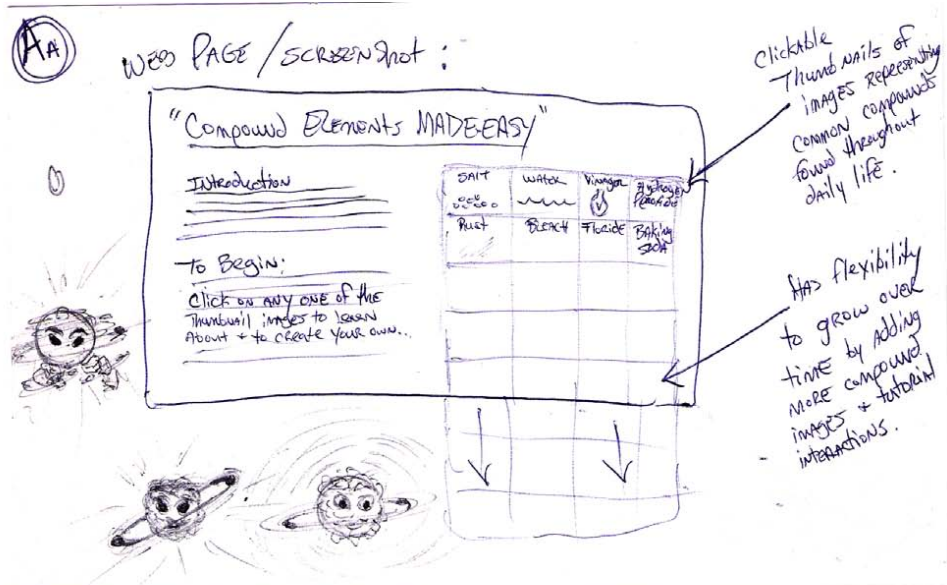 AA
WEB PAGE/SCREENShot:
"Compound Elements MADE-EASY"
Introduction
To Begin:
Click on ANY ONE of the
Thumbnail images to Learn
About + to create your own...
SAlT
WATER
Vinager
Hydrogen
Peroxide
Rust
BLEACH
Floride
BAking
SODA
Clickable
Thumb NAils of
images Representing
Common compounds
found throughout
daily life.
HAS flexibility
to grow over
time by Adding
More compound
images + tutorial
interactions.